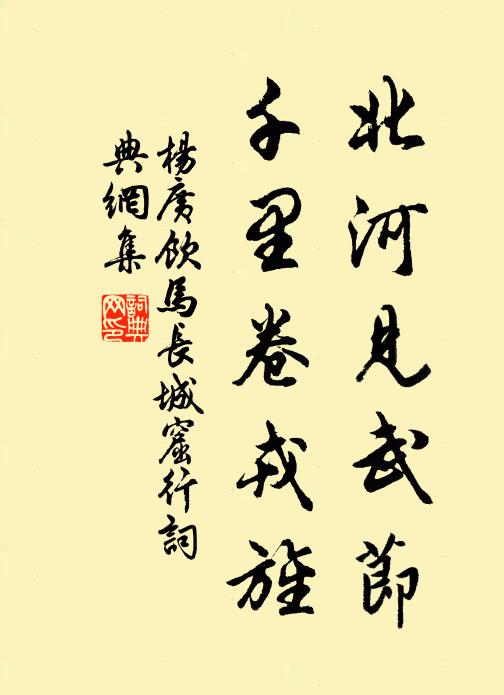 北河見武節
千里卷戎旌
楊廣飲馬長城窟行詞
典網集
詞典
网印